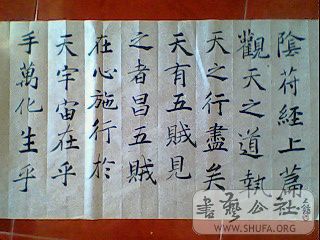 陰符經上篇
觀天之道執
天之行盡矣
天有五賊見
之者昌五賊
在心施行於
天宇宙在乎
手萬化生乎
書藝公社
WWW.SHUFA.ORG